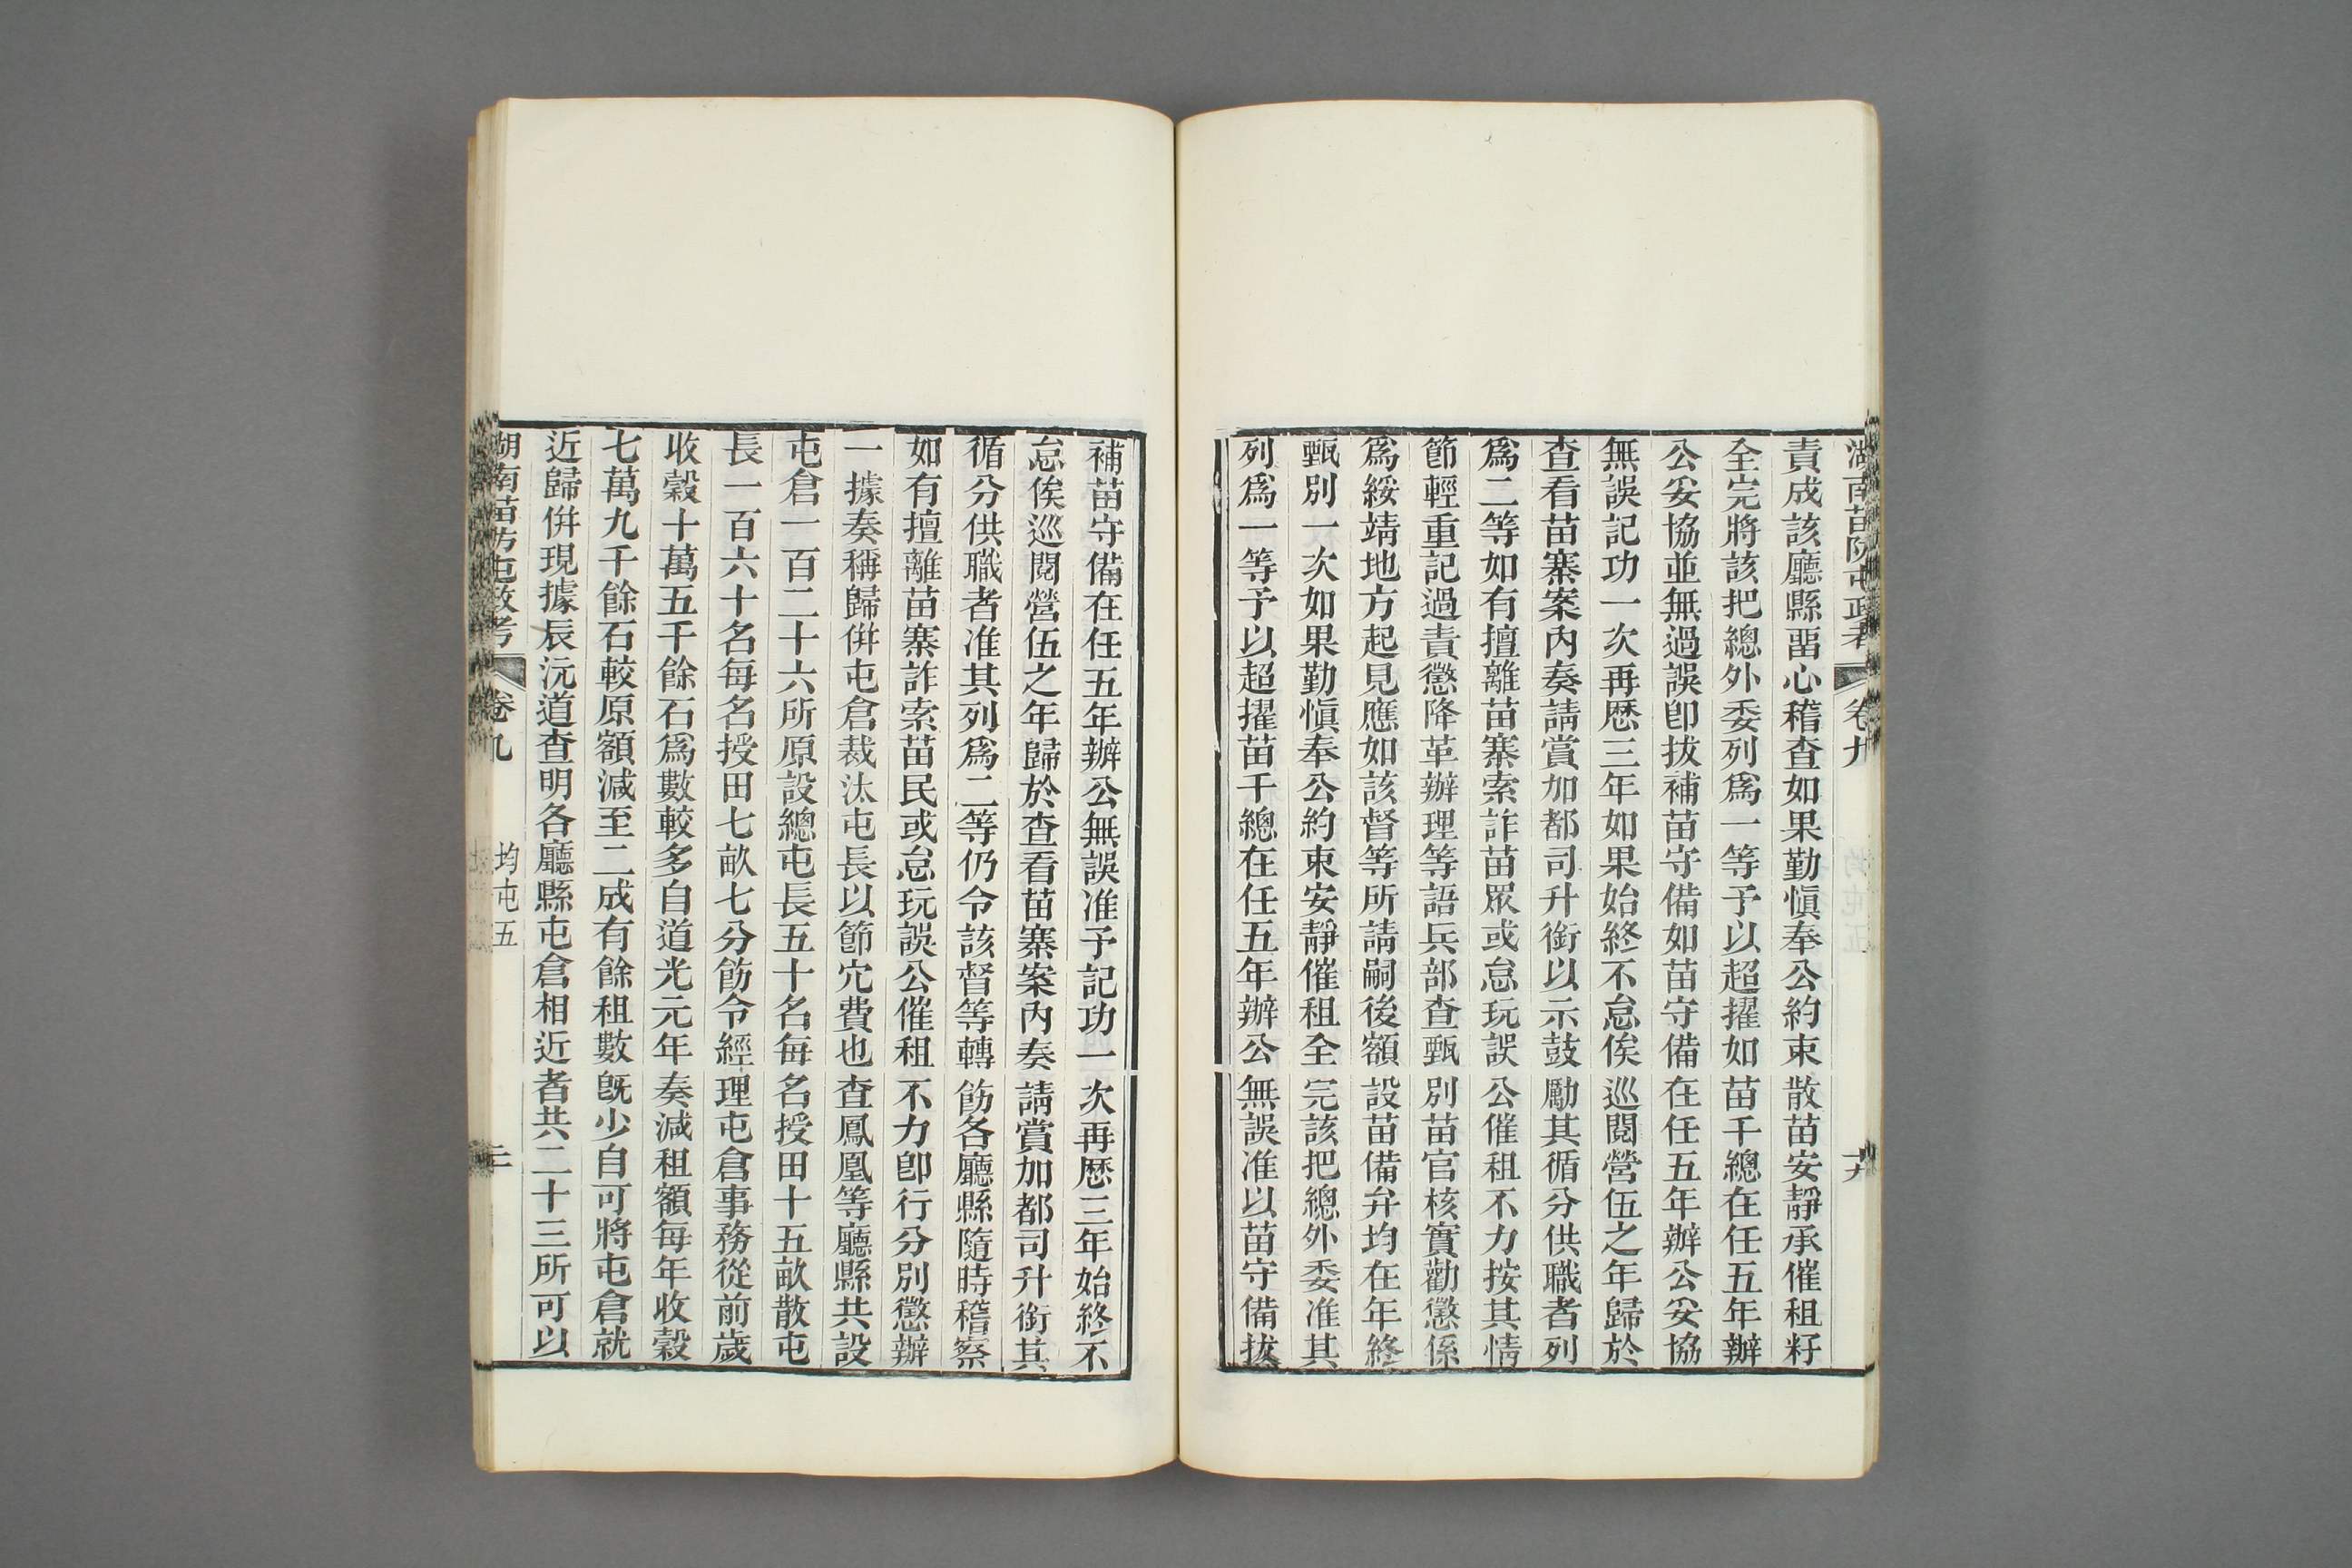 湖南苗防屯政考 卷九
責成該廳縣畱心稽查如果勤愼奉公約束散苗安靜承催租籽
全完將該把總外委列爲一等予以超擢如苗千總在任五年辦
公妥協並無過誤卽拔補苗守備如苗守備在任五年辦公妥協
無誤記功一次再歷三年如果始終不怠俟巡閱營伍之年歸於
查看苗寨案內奏請賞加都司升銜以示鼓勵其循分供職者列
爲二等如有擅離苗寨索詐苗眾或怠玩誤公催租不力按其情
節輕重記過責懲降革辦理等語兵部查甄別苗官核實勸懲係
爲綏靖地方起見應如該督等所請嗣後額設苗備弁均在年終
甄別一次如果勤愼奉公約束安靜催租全完該把總外委准其
列爲一等予以超擢苗千總在任五年辦公無誤准以苗守備拔
補苗守備在任五年辦公無誤准予記功一次再歷三年始終不
怠俟巡閱營伍之年歸於查看苗寨案內奏請賞加都司升銜其
循分供職者准其列爲二等仍令該督等轉飭各廳縣隨時稽察
如有擅離苗寨詐索苗民或怠玩誤公催租不力卽行分別懲辦
一據奏稱歸併屯倉裁汰屯長以節宂費也查鳳凰等廳縣共設
屯倉一百二十六所原設總屯長五十名每名授田十五畝散屯
長一百六十名每名授田七畝七分飭令經理屯倉事務從前歲
收穀十萬五千餘石爲數較多自道光元年奏減租額每年收穀
七萬九千餘石較原額減至二成有餘租數旣少自可將屯倉就
近歸併現據辰沅道查明各廳縣屯倉相近者共二十三所可以
湖南苗防屯政考 卷九 均屯五